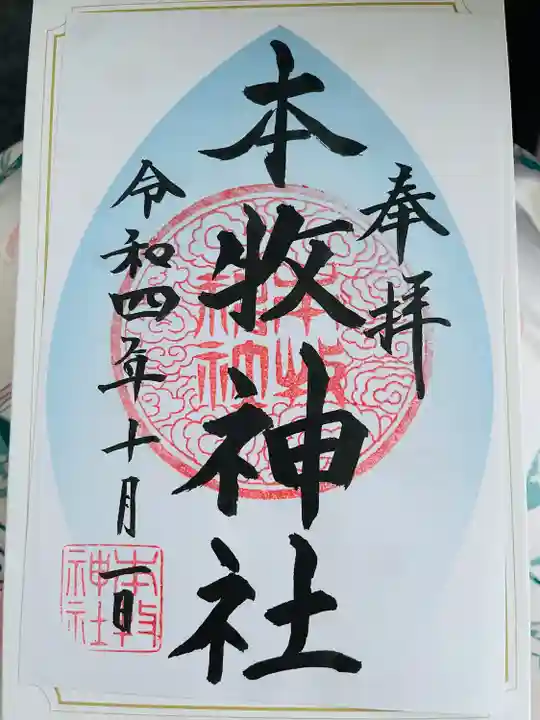 奉拝
本牧神社
令和四年十月一日
本牧神社
本牧神社